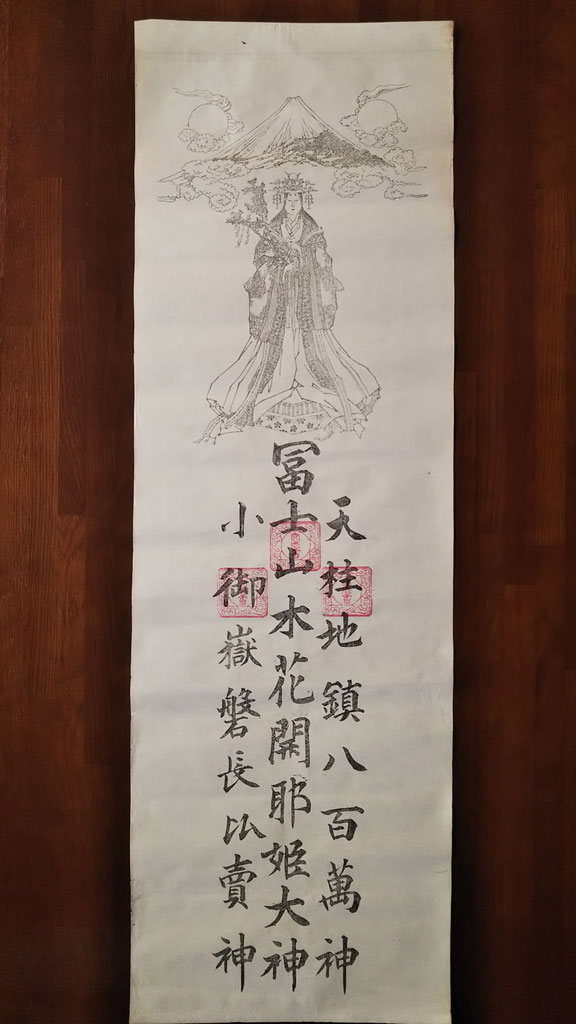 天柱地鎮八百萬神
冨士山木花開耶姫大神
小御嶽磐長比賣神